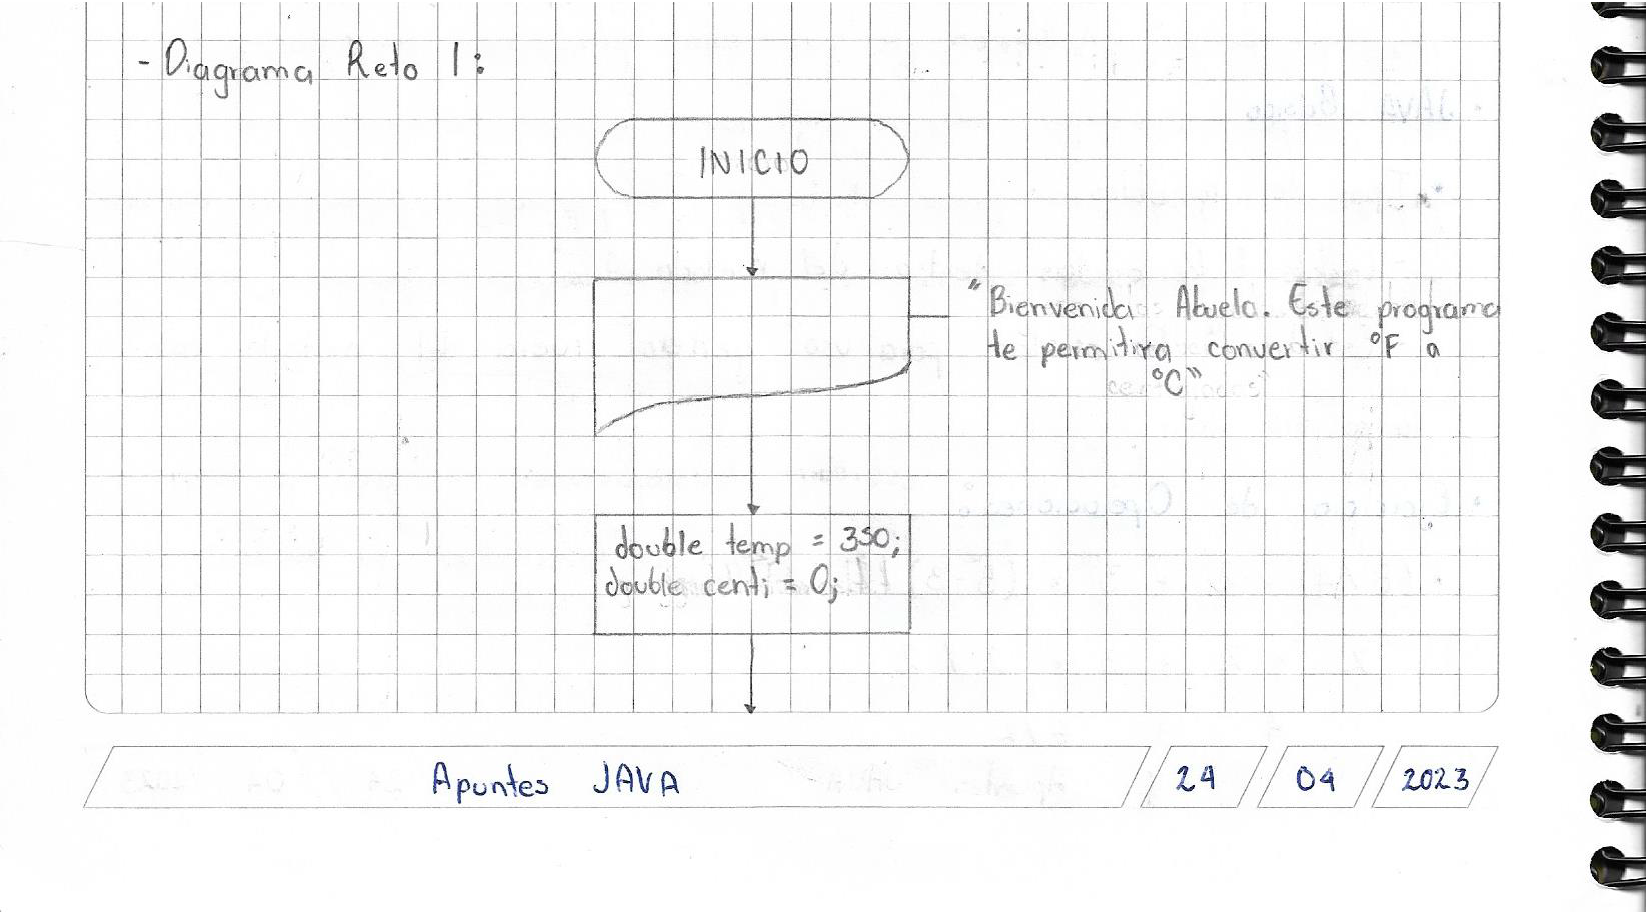 - Diagrama Reto 1:
INICIO
"Bienvenida Abuela. Este programa
te permitira convertir °F a
°C"
double temp = 350;
double centi = 0;
Apuntes JAVA
24 04 2023